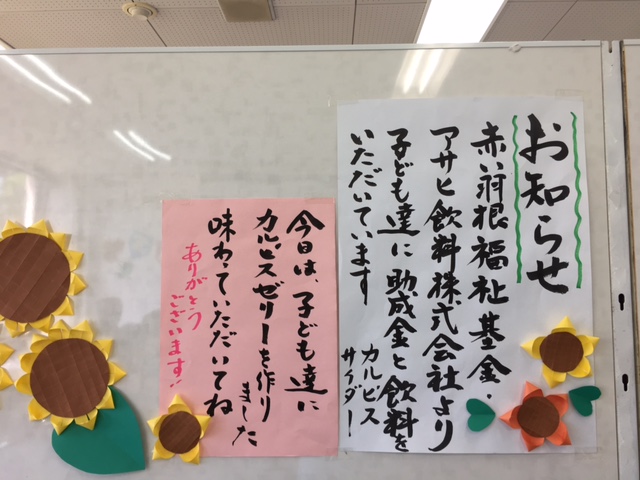 お知らせ
赤い羽根福祉基金・
アサヒ飲料株式会社より
子ども達に助成金と飲料を
いただいています
カルピス
サイダー!
今日は、子ども達に
カルピスゼリーを作り
ました
味わっていただいてね
ありがとう
ございます!